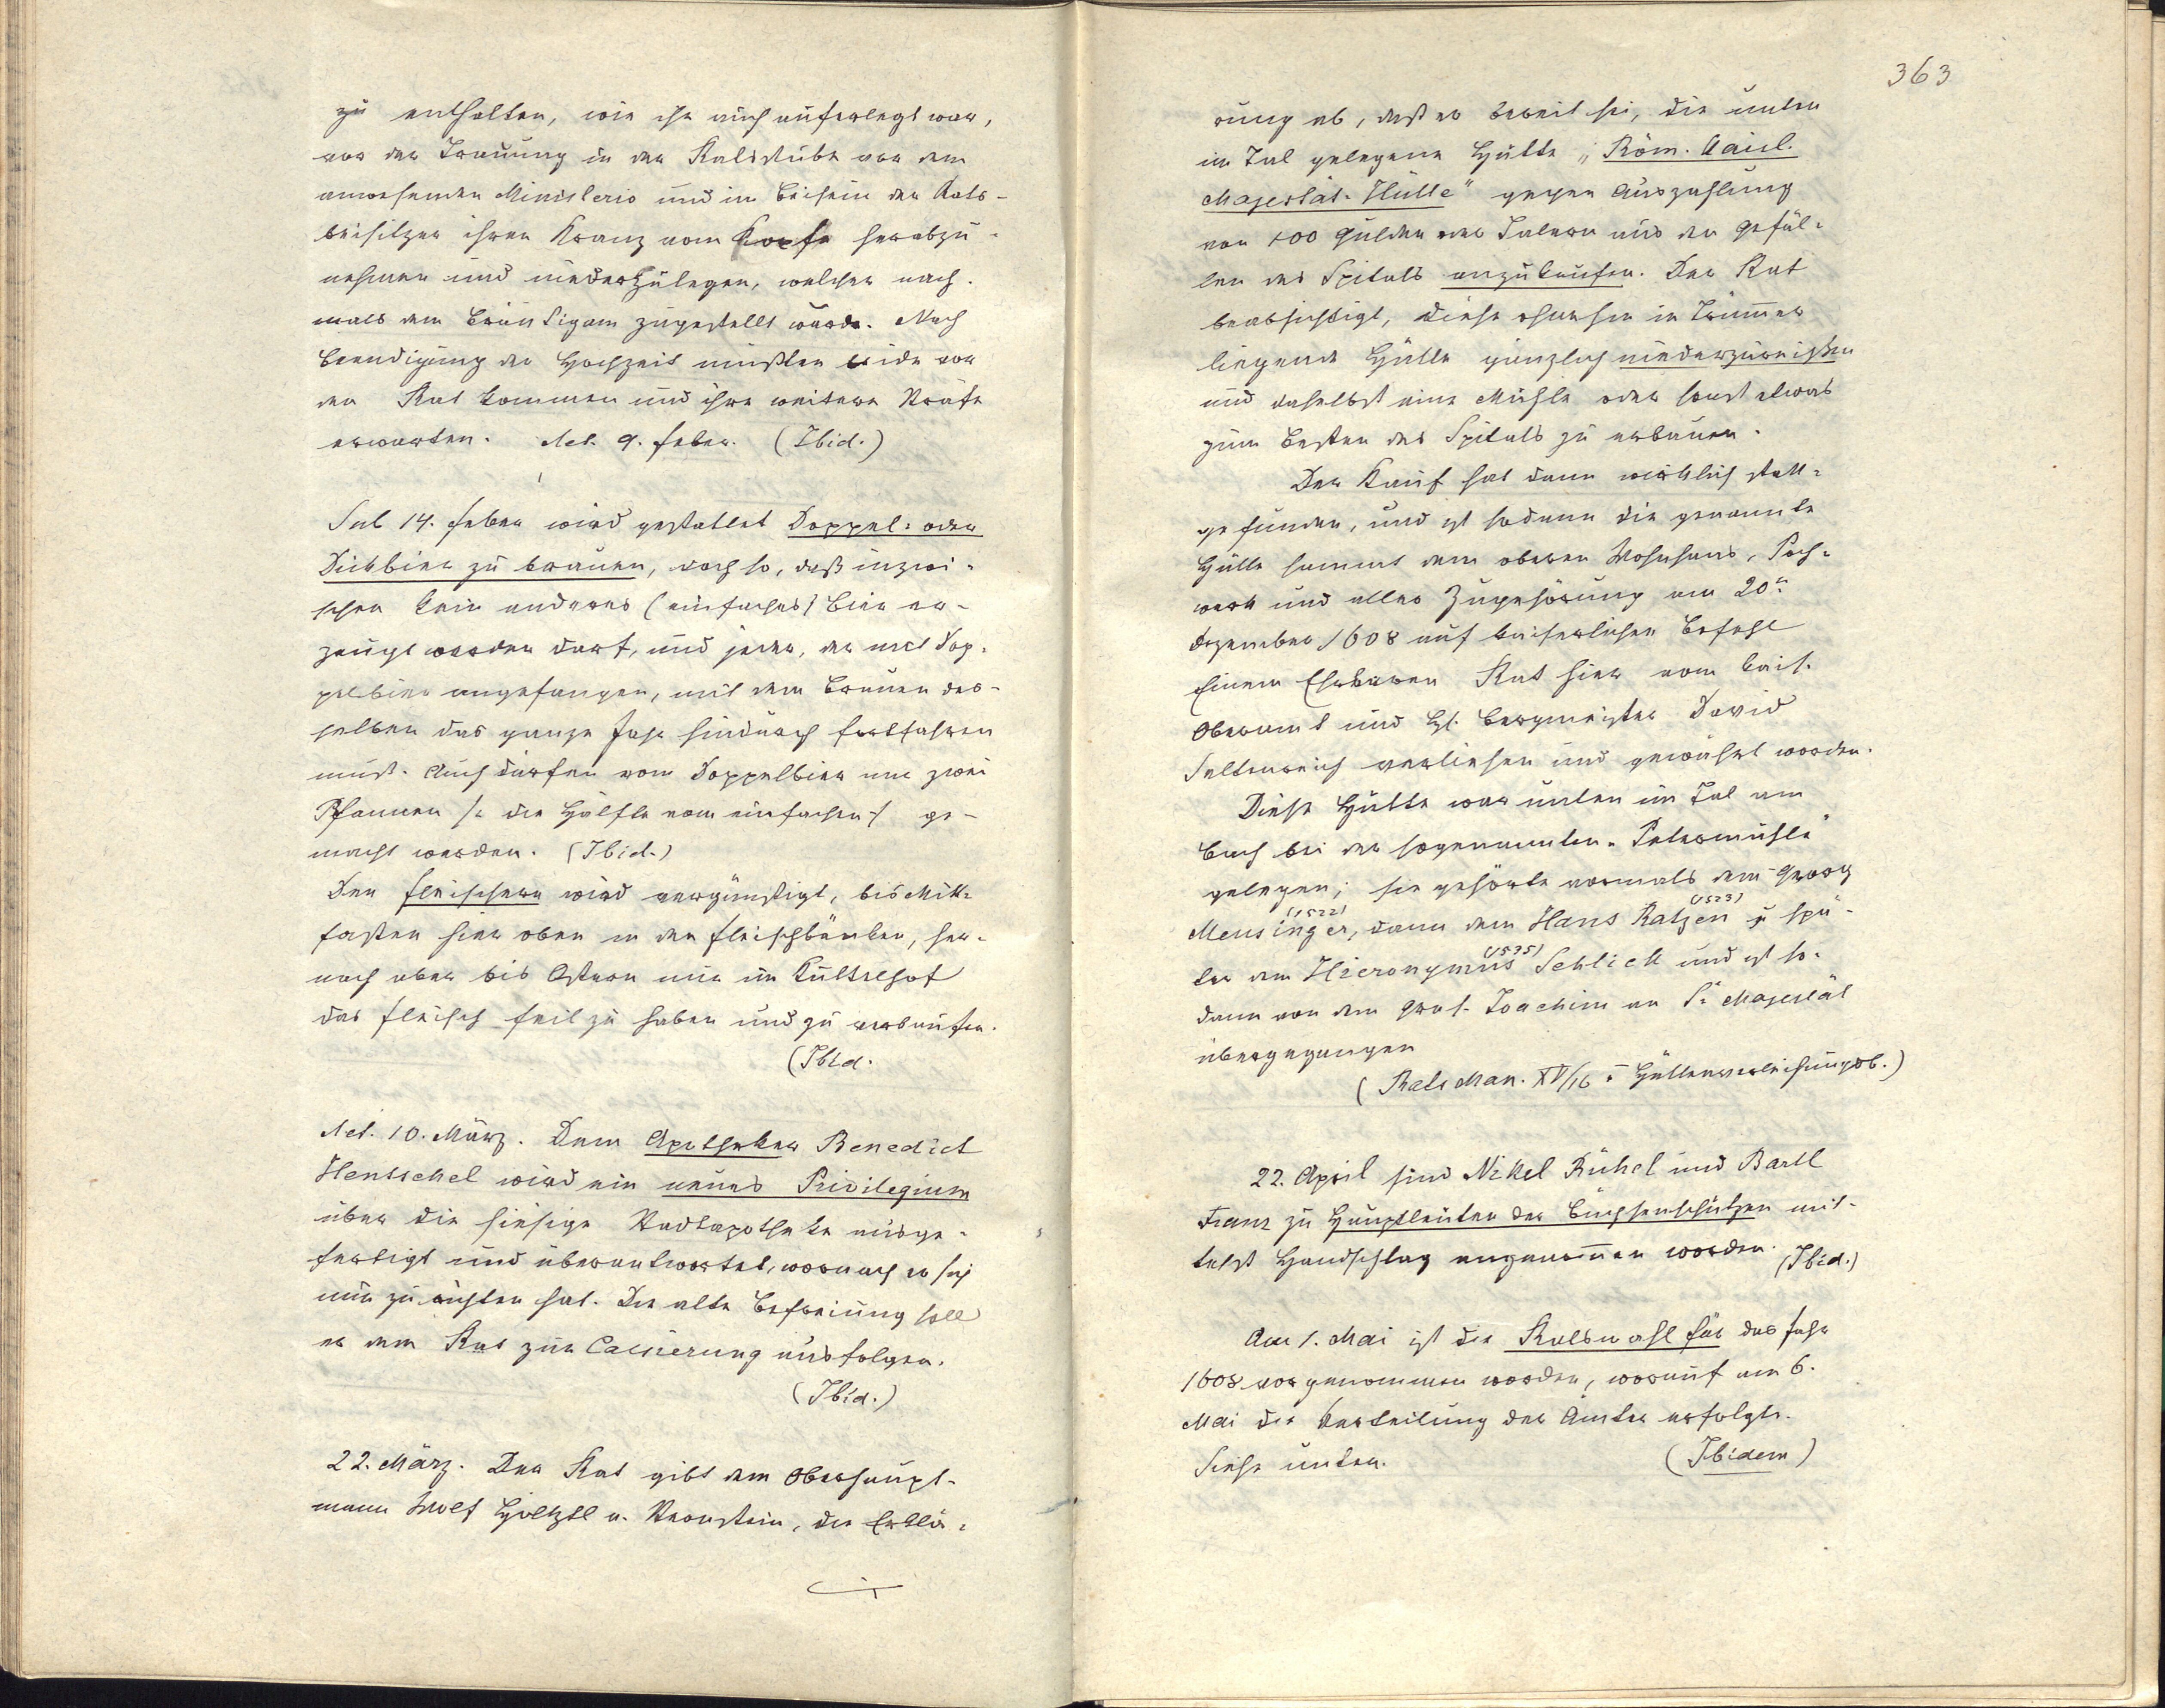 zu enthalten, wie ihr auch auferlegt war,
vor der Trauung in der Ratsstube vor dem
anwesenden Ministerio und im Beisein der Rats-
beisitzer ihren Kranz vom Kopfe herabzu-
nehmen und niederzulegen, welcher nach-
mals dem Bräutigam zugestellt wurde. Nach
Beendigung der Hochzeit mußten beide vor
den Rat kommen und ihre weitere Strafe
erwarten. Act. 9. Feber. (Ibid.)
Sub 14. Feber wird gestattet Doppel- oder
Dickbier zu brauen, doch so, daß inzwi-
schen kein anderes (einfaches) Bier er-
zeugt werden darf, und jeder, der mit Dop-
pelbier angefangen, mit dem Brauen des-
selben das ganze Jahr hindurch fortfahren
muß. Auch dürfen vom Doppelbier nur zwei
Pfannen /: die Hälfte vom einfachen :/ ge-
macht werden. (Ibid.)
Den Fleischern wird vergünstigt, bis Mitt-
fasten hier oben in den Fleischbänken, her-
nach aber bis Ostern nur im Kuttelhof
das Fleisch feil zu haben und zu verkaufen.
(Ibid.
Act. 10. März. Dem Apotheker Benedict
Hentschel wird ein neues Privilegium
über die hiesige Stadtapotheke ausge-
fertigt und überantwortet, wornach er sich
nun zu richten hat. Die alte Befreiung soll
er dem Rat zur Cassierung ausfolgen.
(Ibid.)
22. März. Der Rat gibt dem Oberhaupt-
mann Wolf Höltzl v. Sternstein, die Erklä-
363
rung ab, daß er bereit sei, die unten
im Tal gelegene Hütte „Röm. Kaisl.
Majestät-Hütte" gegen Auszahlung
von 100 Gulden oder Talern aus den Gefäl-
len des Spitals anzukaufen. Der Rat
beabsichtigt, diese ohnehin in Trümmer
liegende Hütte gänzlich niederzureißen
und daselbst eine Mühle oder sonst etwas
zum Besten des Spitals zu erbauen.
Der Kauf hat dann wirklich statt-
gefunden, und ist sodann die genannte
Hütte sammt dem oberen Wohnhaus, Poch-
werk und aller Zugehörung am 20n
Dezember 1608 auf kaiserlichen Befehl
Einem Ehrbaren Rat hier vom kais.
Oberamt und H. Bergmeister David
Seltenreich verliehen und gewährt worden.
Diese Hütte war unten im Tal am
Bach bei der sogenannten „Petermühle"
gelegen; sie gehörte vormals dem Georg
Mensinger (1522), dann dem Hans Ratzen (1523) u spä-
ter dem Hieronymus (1535) Schlick und ist so-
dann von dem Graf. Joachim an Sr Majestät
übergegangen
(Rats Man. XV/16 u Hüttenverleihungsb.)
22. April sind Nikel Rühel und Bartl
Franz zu Hauptleuten der Büchsenschützen mit-
telst Handschlag angenommen worden. (Ibid.)
Am 1. Mai ist die Ratswahl für das Jahr
1608 vorgenommen worden, worauf am 6.
Mai die Verteilung der Ämter erfolgte.
Siehe unten. (Ibidem)